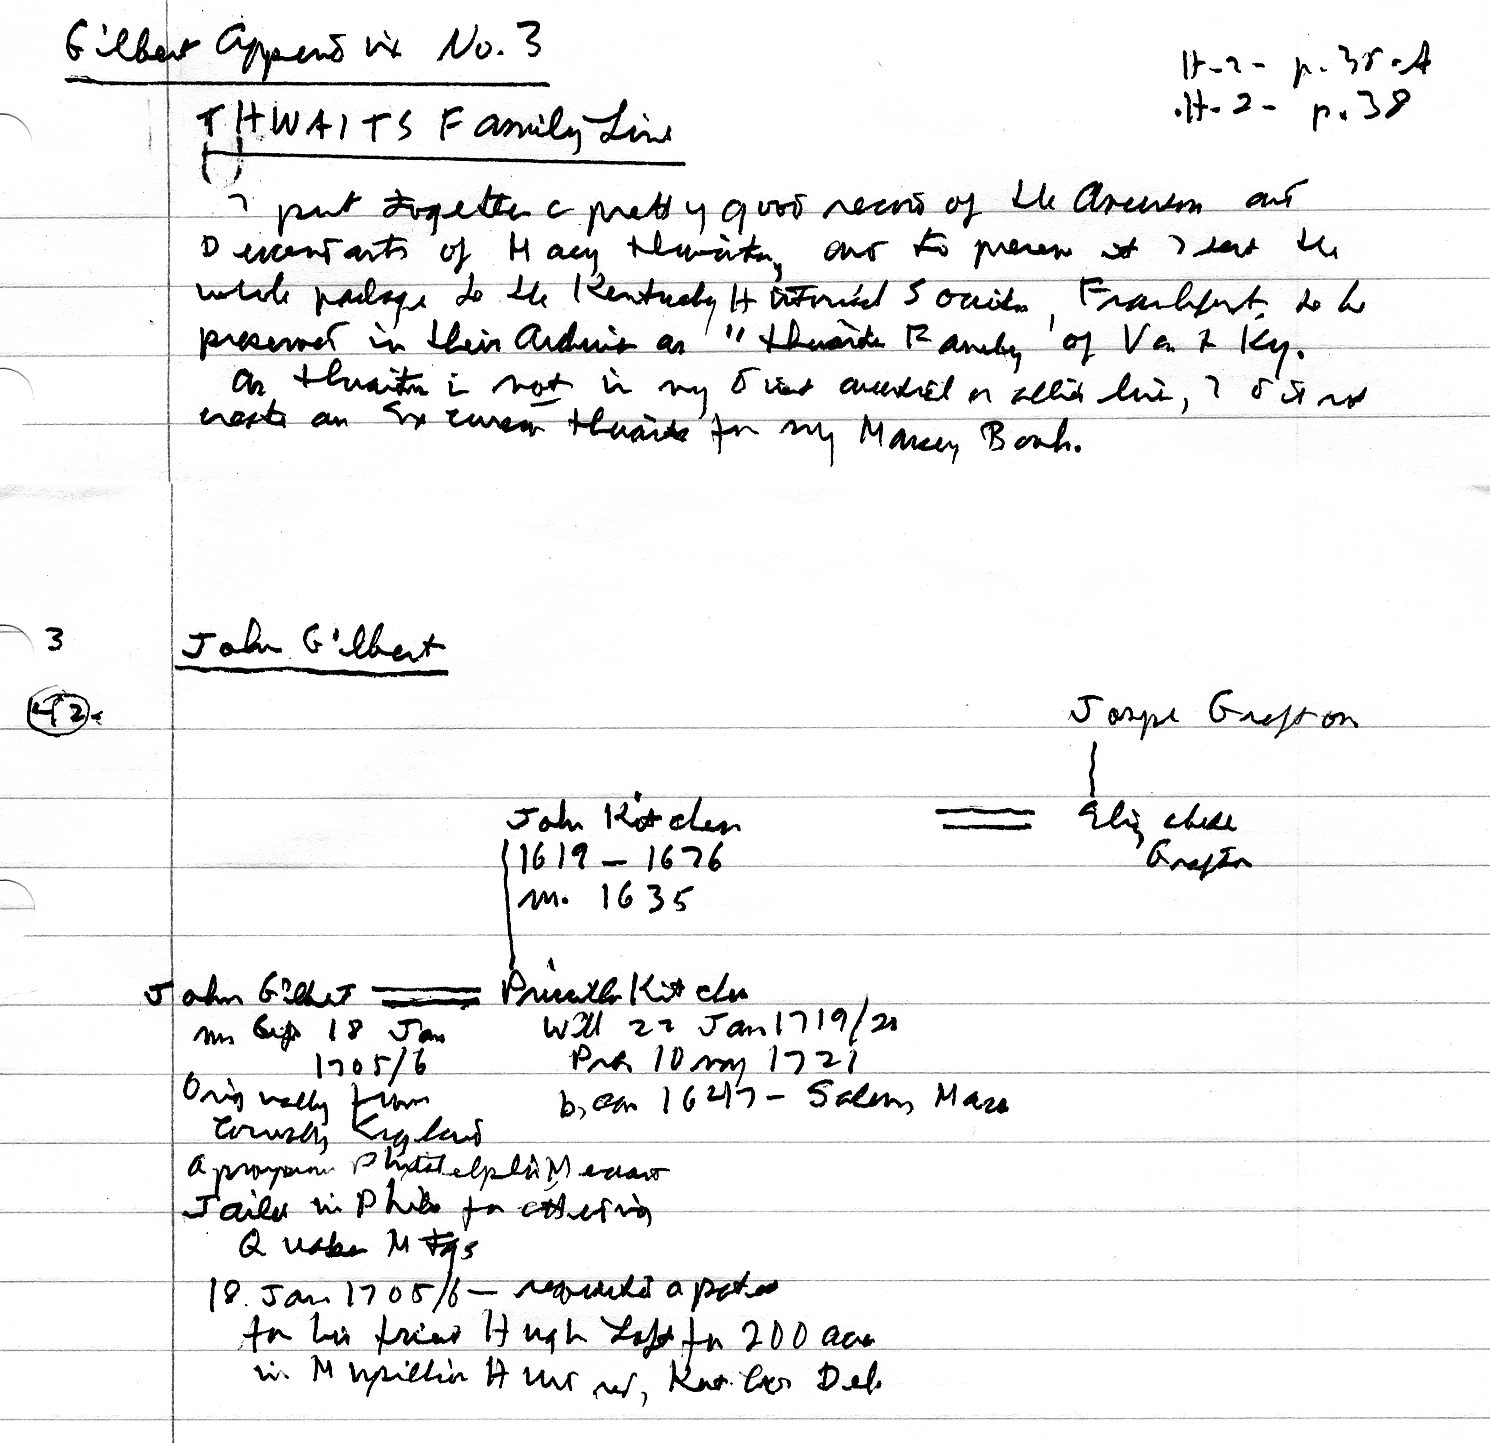 Gilbert Appendix No. 3
H-2- p. 35-A
H-2- p. 38
THWAITS Family Line
I put together a pretty good record of the Ancestors and
Descendants of Mary Thwaits, and to preserve it I sent the
whole package to the Kentucky Historical Society, Frankfort, to be
preserved in their Archives as "Thwaits Family" of Va & Ky.
As Thwaits is not in my direct ancestral or allied line, I did not
create an Excursus Thwaits for my Book.
3
John Gilbert
42.
Joseph Grafton
John Kitchen
Elizabeth
1619 - 1676
Grafton
m. 1635
John Gilbert
Priscilla Kitchen
18 Jan
Will 22 Jan 1719/20
1705/6
Pro. 10 1721
Originally from
b, 1647 - Salem, Mass
England
a Philadelphia
Jailed in Phila for attending
Quaker Mtgs
18 Jan 1705/6 - requested a patent
for his friend Hugh for 200 acres
in Mispillion Hundred, Kent Del.